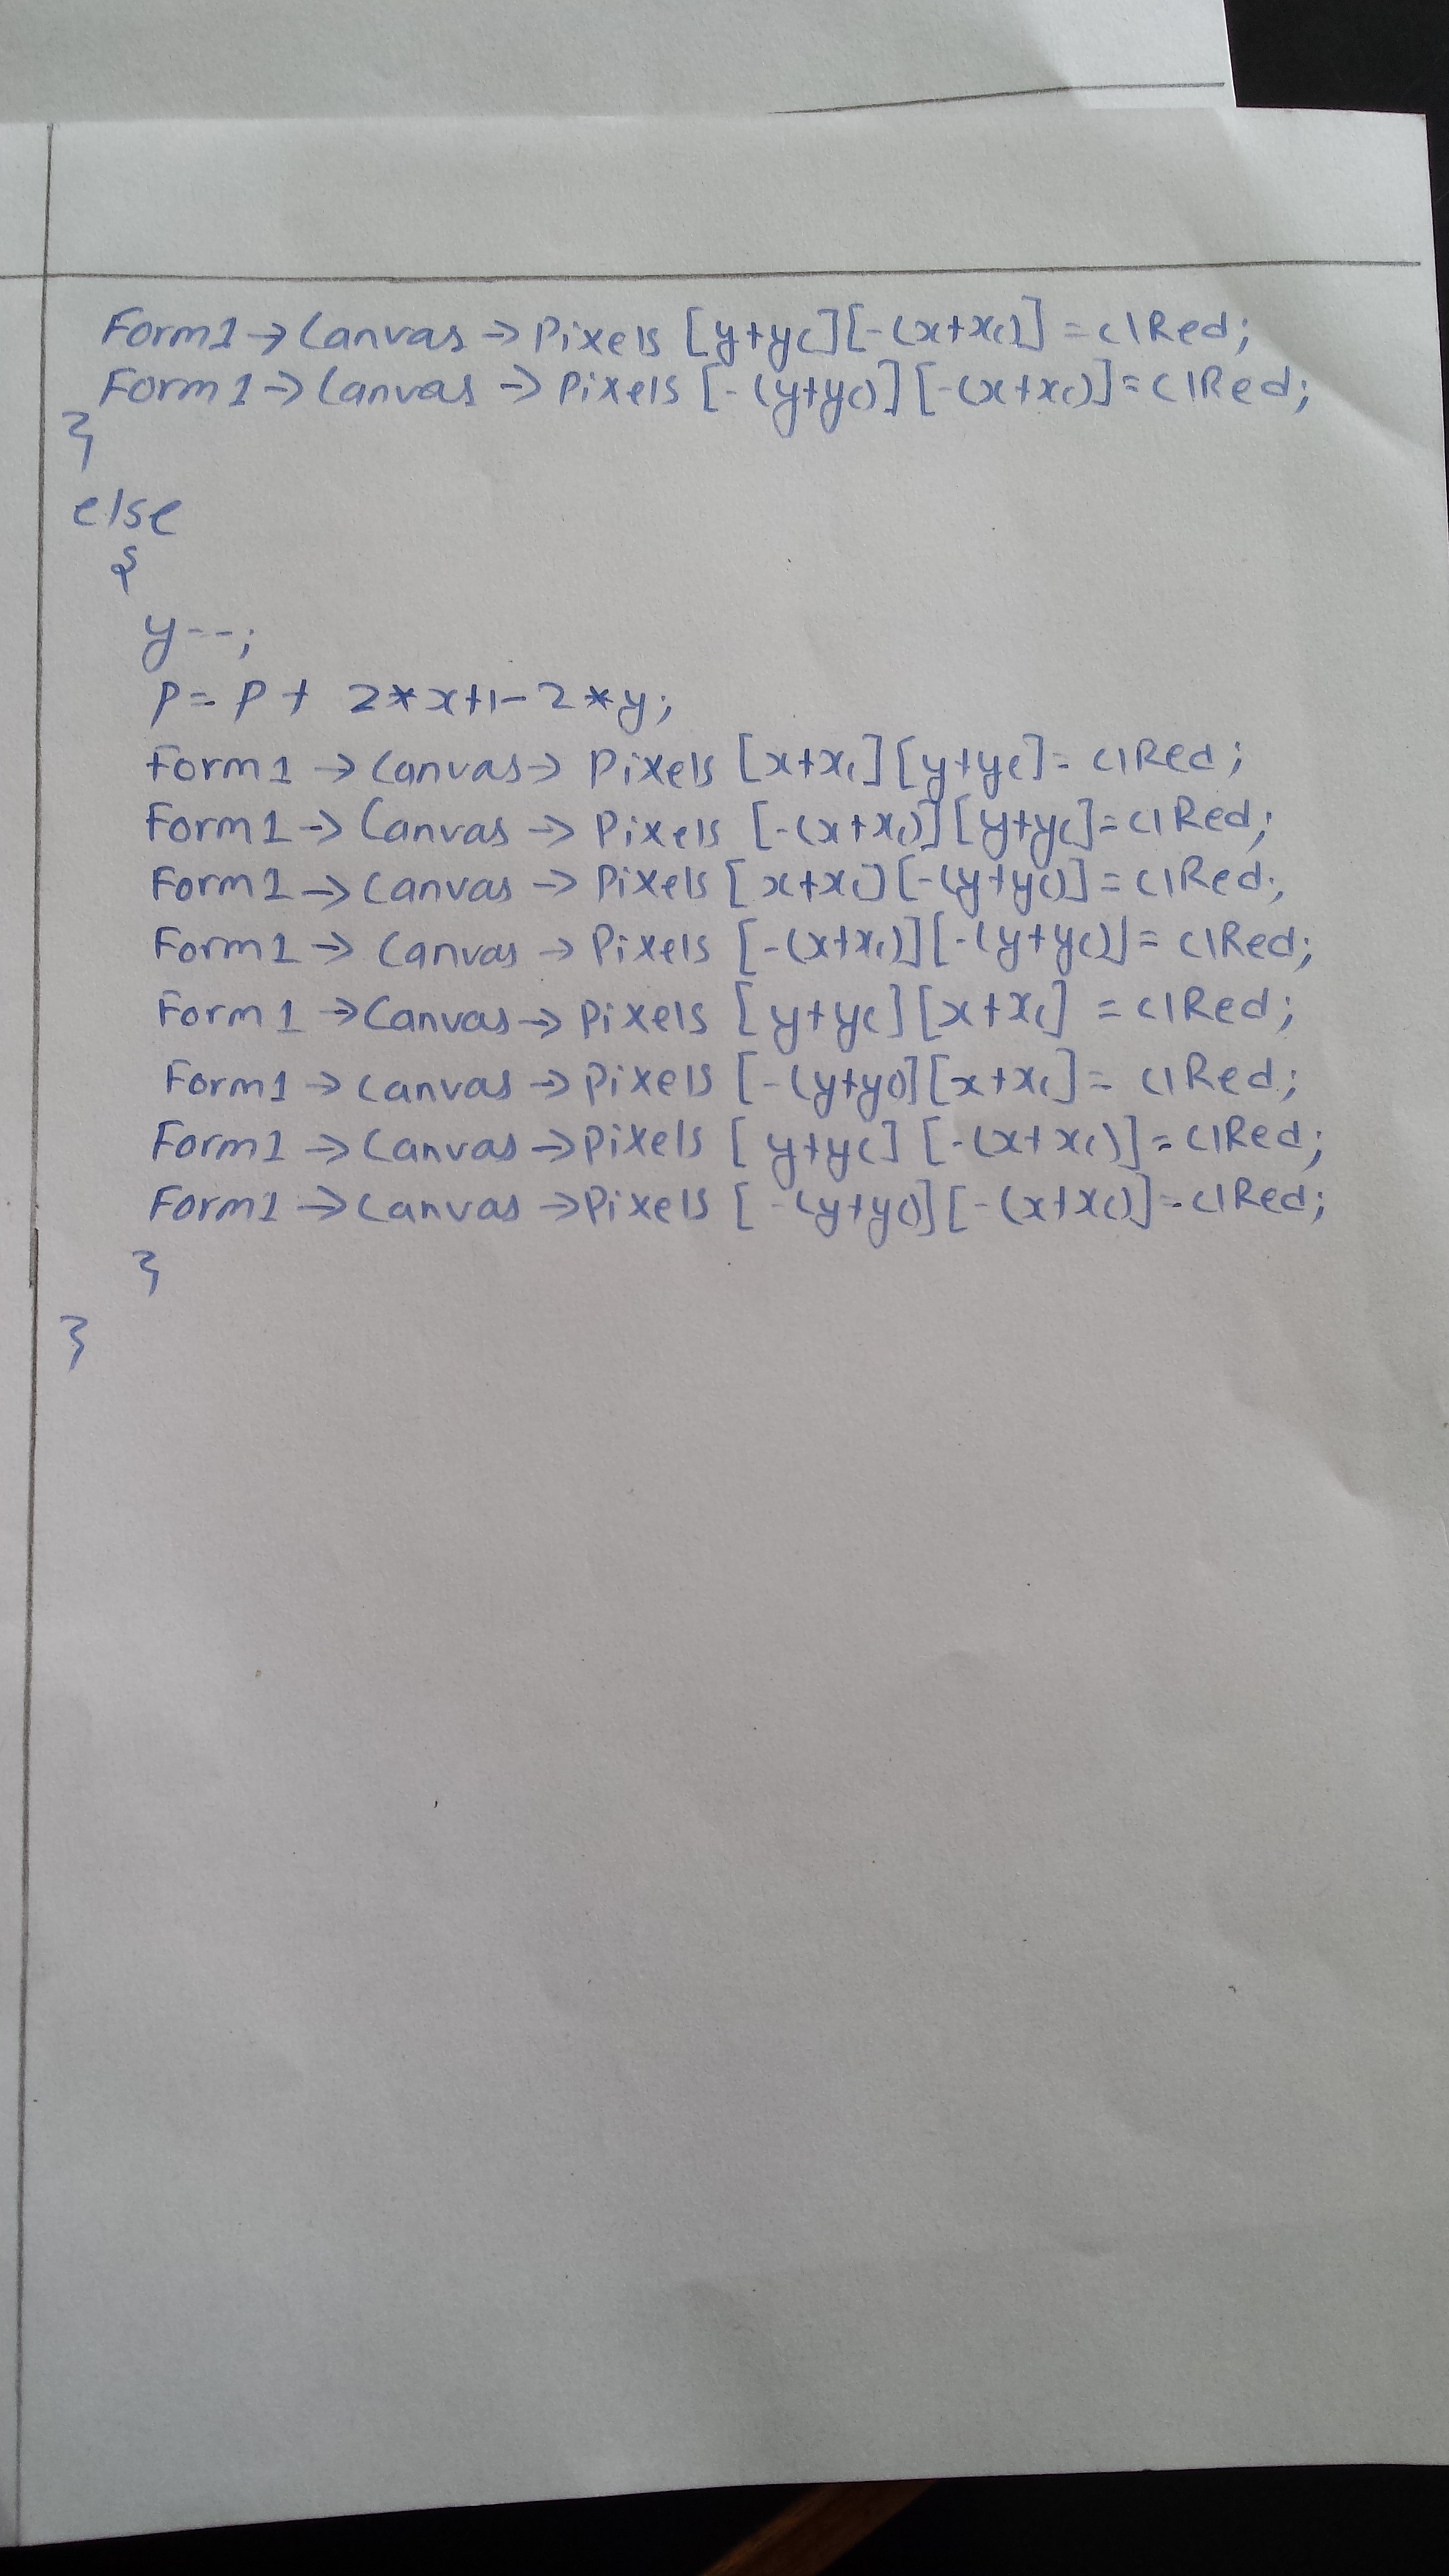 Form1→Canvas→Pixels [y+yc][-(x+xc)]=clRed;
Form1→Canvas→Pixels [-(y+yc)][-(x+xc)]=clRed;
}
else
{
y--;
P=P+ 2*x+1-2*y;
Form1→Canvas→Pixels [x+xc][y+yc]=clRed;
Form1→Canvas→Pixels [-(x+xc)][y+yc]=clRed;
Form1→Canvas→Pixels [x+xc][-(y+yc)]=clRed;
Form1→Canvas→Pixels [-(x+xc)][-(y+yc)]=clRed;
Form1→Canvas→Pixels [y+yc][x+xc]=clRed;
Form1→Canvas→Pixels [-(y+yc)][x+xc]=clRed;
Form1→Canvas→Pixels [y+yc][-(x+xc)]=clRed;
Form1→Canvas→Pixels [-(y+yc)][-(x+xc)]=clRed;
}
}